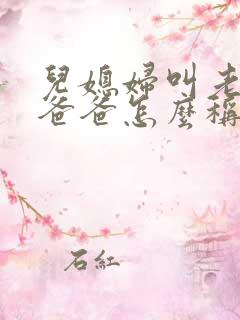 兒媳婦叫老
爸爸怎麼稱
石紅